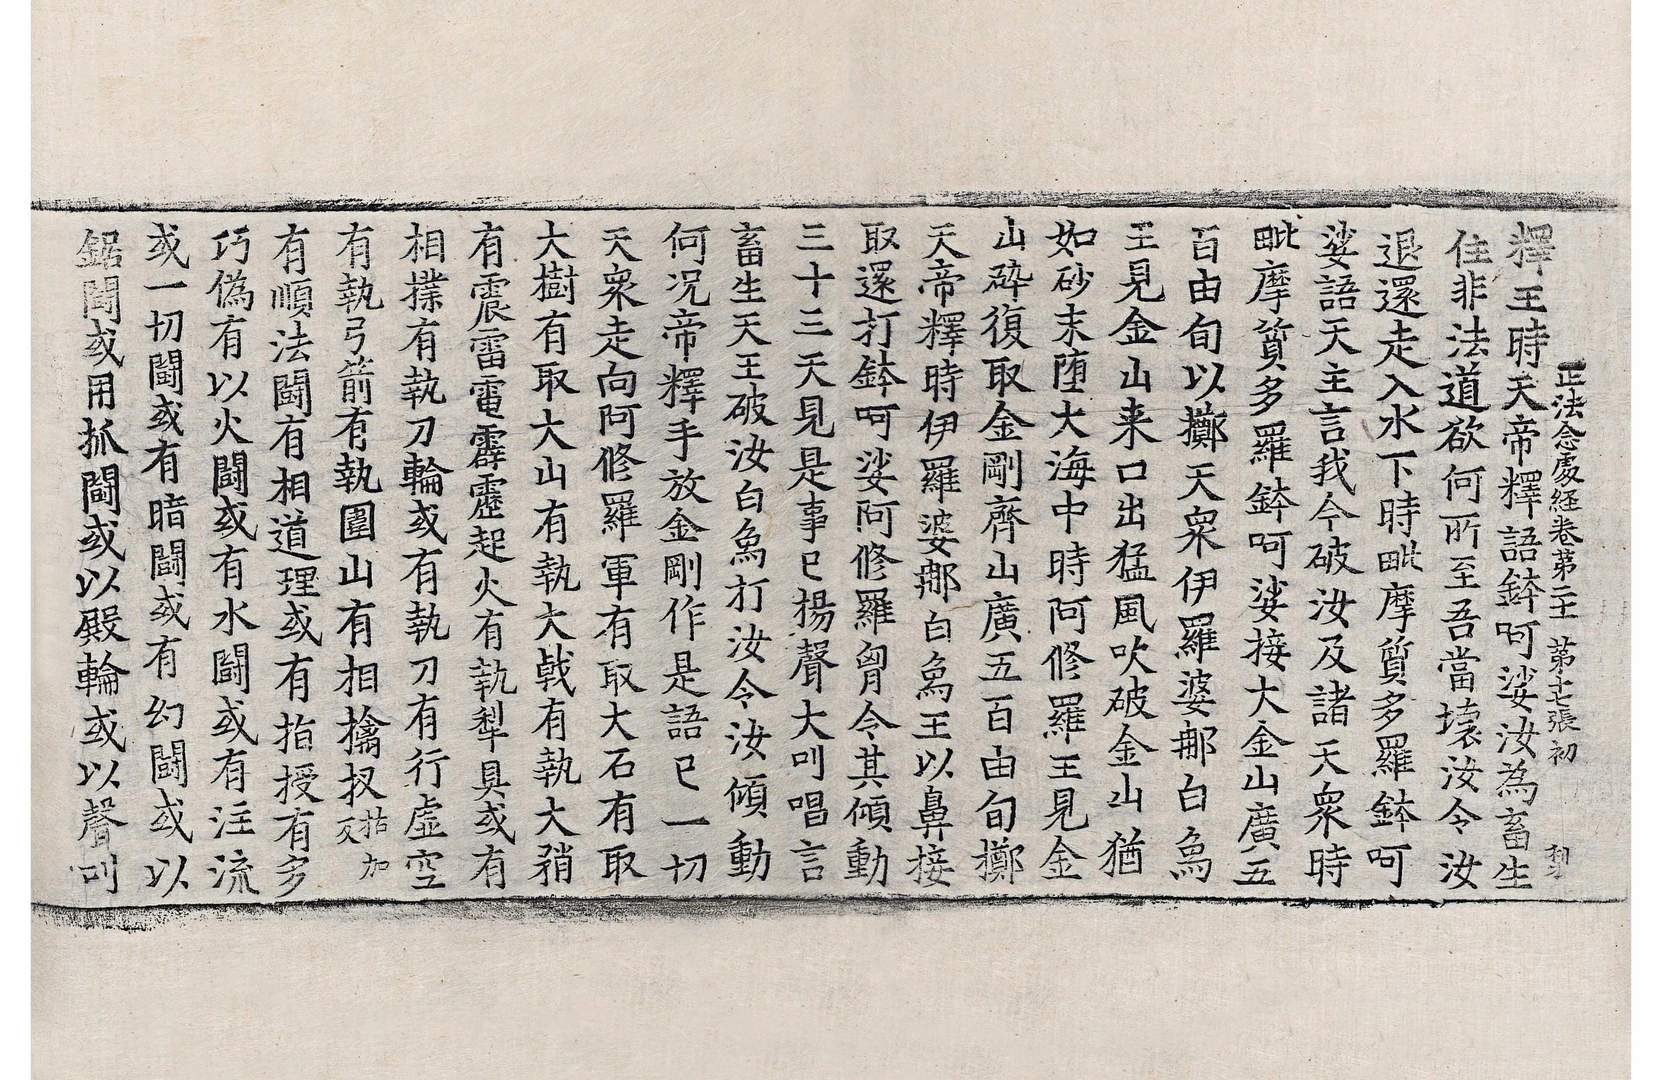 正法念處経卷第二十 第七張 初
釋王時天帝釋語鉢呵娑汝為畜生
住非法道欲何所至吾當壞汝令汝
退還走入水下時毗摩質多羅鉢呵
娑語天主言我今破汝及諸天衆時
毗摩質多羅鉢呵娑接大金山廣五
百由旬以擲天衆伊羅婆那白烏
王見金山来口出猛風吹破金山猶
如砂末墮大海中時阿修羅王見金
山碎復取金剛齊山廣五百由旬擲
天帝釋時伊羅婆那白烏王以鼻接
取還打鉢呵娑阿修羅胷令其傾動
三十三天見是事已揚聲大叫唱言
畜生天王破汝白烏打汝令汝傾動
何況帝釋手放金剛作是語已一切
天衆走向阿修羅軍有取大石有取
大樹有取大山有執大戟有執大矟
有震雷電霹靂起火有執犁具或有
相撲有執刀輪或有執刀有行虛空
有執弓箭有執圍山有相擒扠拈加反
有順法鬪有相道理或有指授有多
巧偽有以火鬪或有水鬪或有注流
或一切鬪或有暗鬪或有幻鬪或以
鋸鬪或用抓鬪或以殿輪或以聲叫